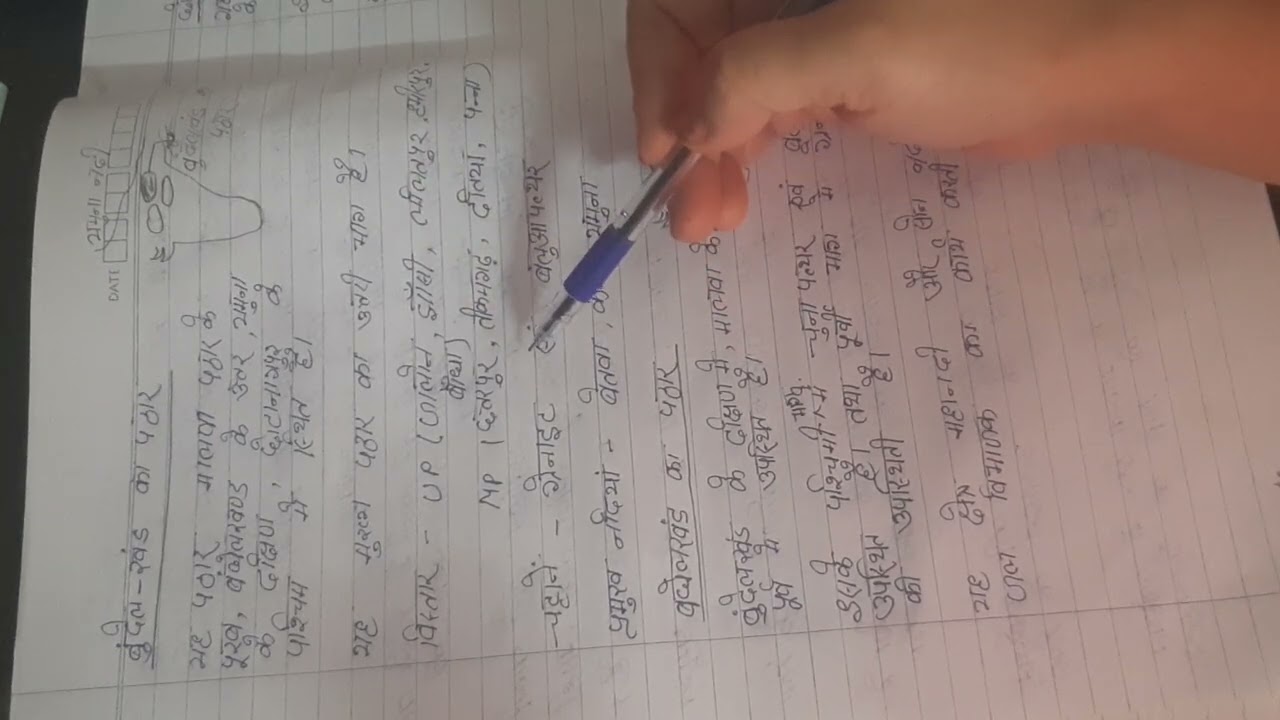 DATE
यमुना नदी
बुंदेलखंड का
पठार
बुंदेल-खंड का पठार
यह पठार मालवा पठार के
पूरब, बघेलखण्ड के उत्तर, यमुना
के दक्षिण छोटानागपुर के
पश्चिम में स्थित है।
यह मुख्य पठार का उत्तरी भाग है।
विस्तार - UP (जालौन, झाँसी, ललितपुर, हमीरपुर,
बाँदा)
MP (छतरपुर, टीकमगढ़, दतिया, पन्ना)
चट्टानें - ग्रेनाइट बलुआ पत्थर
प्रमुख नदियां - बेतवा, यमुना
बघेलखंड का पठार
बुंदेलखंड के दक्षिण में, मालवा के
पूर्व में उपस्थित है।
इसके पश्चिमी भाग में चुना पत्थर एवं
उपस्थित है। तथा पूर्वी भाग में
की उपस्थिती है।
यह क्षेत्र महानदी और सोन
जल विभाजक का काय करती